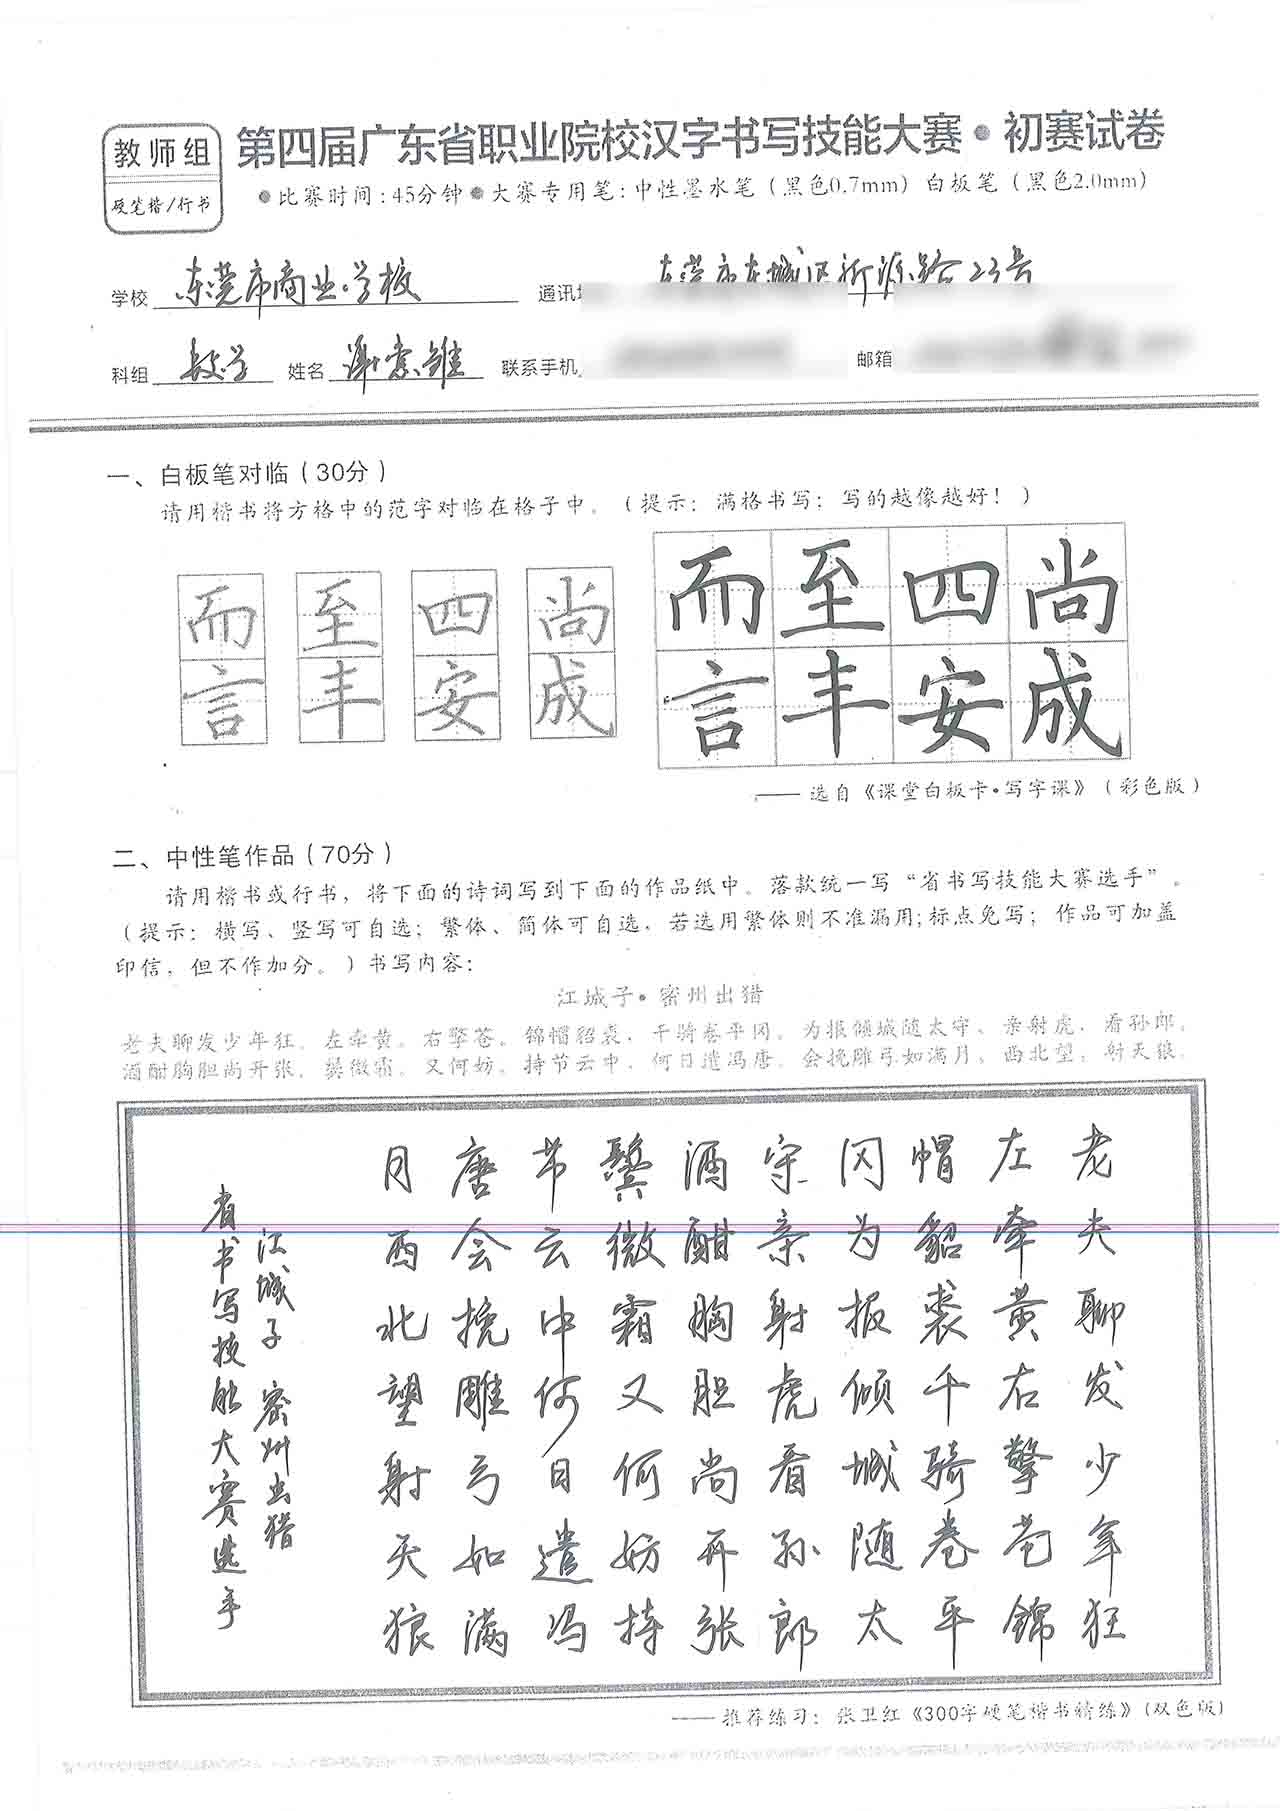 教师组
硬笔楷/行书
第四届广东省职业院校汉字书写技能大赛•初赛试卷
●比赛时间:45分钟●大赛专用笔:中性墨水笔(黑色0.7mm)白板笔(黑色2.0mm)
学校 东莞市商业学校 通讯地 东莞市东城区
科组 数学 姓名 谢 雄 联系手机 邮箱
一、白板笔对临(30分)
请用楷书将方格中的范字对临在格子中。(提示:满格书写;写的越像越好!)
而 至 四 尚 而 至 四 尚
言 丰 安 成 言 丰 安 成
——选自《课堂白板卡•写字课》(彩色版)
二、中性笔作品(70分)
请用楷书或行书,将下面的诗词写到下面的作品纸中。落款统一写“省书写技能大赛选手”。
(提示:横写、竖写可自选;繁体、简体可自选,若选用繁体则不准漏用;标点免写;作品可加盖
印信,但不作加分。)书写内容:
江城子•密州出猎
老夫聊发少年狂,左牵黄,右擎苍,锦帽貂裘,千骑卷平冈。为报倾城随太守,亲射虎,看孙郎。
酒酣胸胆尚开张,鬓微霜,又何妨。持节云中,何日遣冯唐。会挽雕弓如满月,西北望,射天狼。
老夫聊发少年狂
左牵黄右擎苍锦
帽貂裘千骑卷平
冈为报倾城随太
守亲射虎看孙郎
酒酣胸胆尚开张
鬓微霜又何妨持
节云中何日遣冯
唐会挽雕弓如满
月西北望射天狼
江城子 密州出猎
省书写技能大赛选手
——推荐练习:张卫红《300字硬笔楷书精练》(双色版)